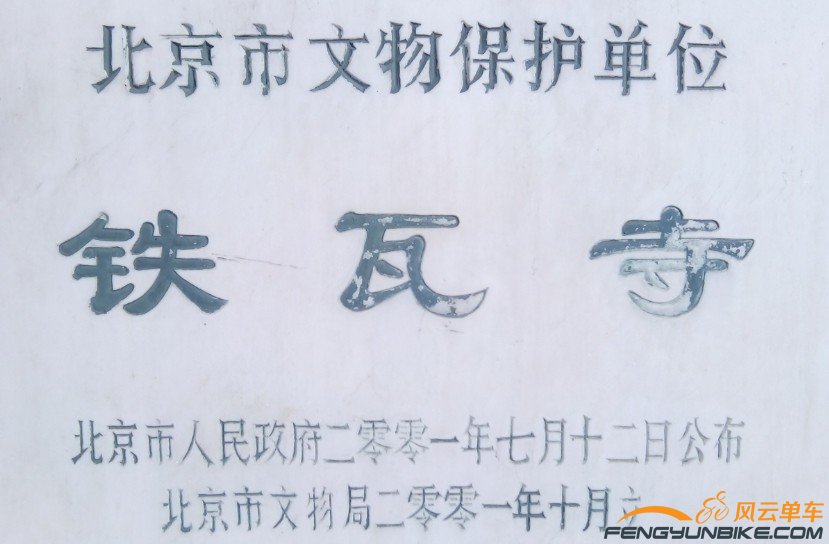 北京市文物保护单位
铁瓦寺
北京市人民政府二零零一年七月十二日公布
北京市文物局二零零一年十月立
风云单车
FENGYUNBIKE.COM